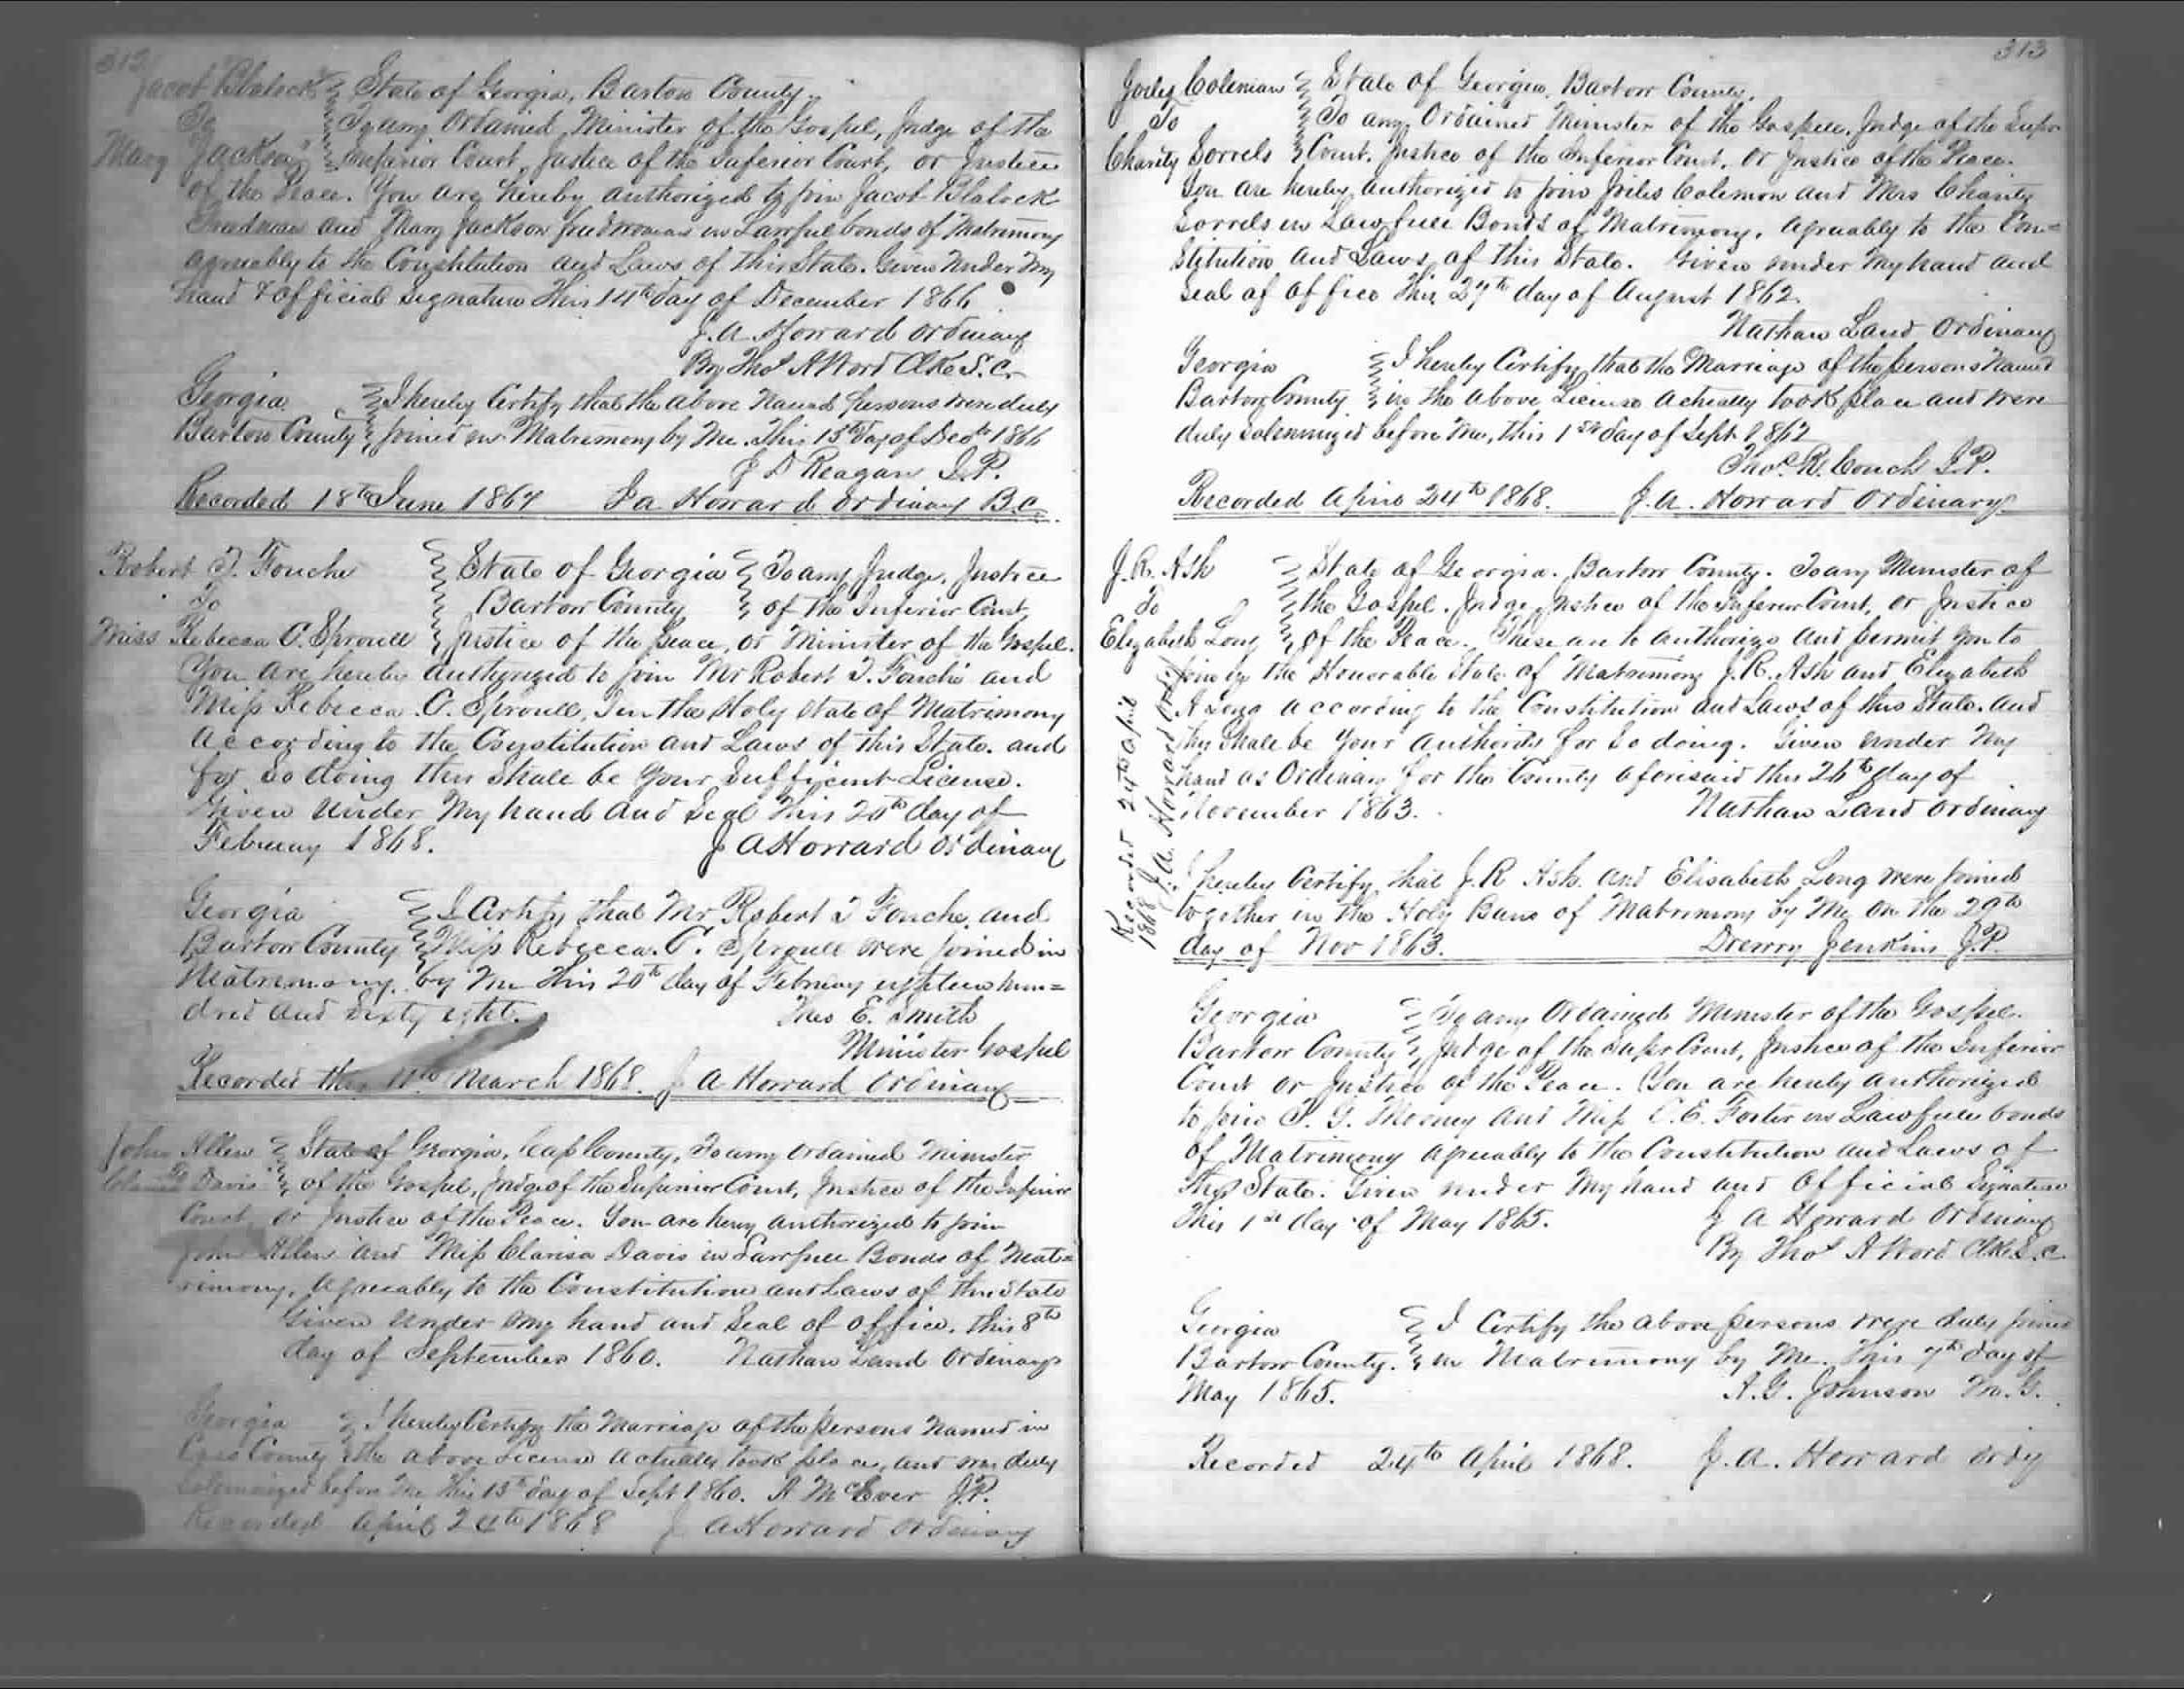 312
Jacob Blalock State of Georgia, Bartow County.
To To any Ordained Minister of the Gospel, Judge of the
Mary Jackson Superior Court, Justice of the Inferior Court, or Justice
of the Peace. You are hereby authorized to join Jacob Blalock
Freedman and Mary Jackson freedwoman in Lawful bonds of Matrimony
agreeably to the Constitution and Laws of this State. Given under my
hand & official signature this 14th day of December 1866
J. A. Howard Ordinary
By Thos A Word Clk S.C.
Georgia I hereby Certify that the above Named persons were duly
Bartow County joined in Matrimony by Me. This 15th day of Decr 1866
J D Reagan J.P.
Recorded 18th June 1867 J a Howard Ordinary B.C.
Robert T. Fouche State of Georgia To any Judge, Justice
To Bartow County of the Inferior Court,
Miss Rebecca C. Sproull Justice of the Peace, or Minister of the Gospel.
You are hereby authorized to join Mr Robert T. Fouche and
Miss Rebecca C. Sproull, In the Holy state of Matrimony
according to the Constitution and Laws of this State. and
for so doing this shall be Your Sufficient License.
Given under My hand and Seal This 20th day of
February 1868. J A Howard Ordinary
Georgia I Certify that Mr Robert T Fouche and
Bartow County Miss Rebecca C. Sproull were joined in
Matrimony by Me This 20th day of February eighteen hun=
dred and Sixty eight. Thos E. Smith
Minister Gospel
Recorded this 11th March 1868. J A Howard Ordinary
John Allen State of Georgia, Cass County, To any Ordained Minister
To Davis of the Gospel, Judge of the Superior Court, Justice of the Inferior
Court or Justice of the Peace. You are hereby authorized to join
John Allen and Miss Clarisa Davis in Lawfull Bonds of Mat=
rimony, Agreeably to the Constitution and Laws of this State
Given under my hand and Seal of office, this 8th
day of September 1860. Nathan Land Ordinary
Georgia I hereby Certify the Marriage of the persons Named in
Cass County the above License actually took place, and was duly
Solemnized before Me this 13th day of Sept 1860. A McEver J.P.
Recorded April 24th 1868 J A Howard Ordinary
313
Coleman State of Georgia, Bartow County.
To To any Ordained Minister of the Gospell, Judge of the Supr
Charity Sorrels Court, Justice of the Inferior Court, or Justice of the Peace.
You are hereby authorized to join Coleman and Mrs Charity
Sorrels in Lawfull Bonds of Matrimony, agreeably to the Con=
stitution and Laws of this State. Given under My hand and
Seal of office this 27th day of August 1862.
Nathan Land Ordinary
Georgia I hereby Certify that the Marriage of the persons Named
Bartow County in the above License actually took place and were
duly solemnized before Me, this 1st day of Sept 1862
Thos. R. Couch J.P.
Recorded April 24th 1868. J. A. Howard Ordinary
J. R. Ash State of Georgia. Bartow County. To any Minister of
To the Gospel, Judge, Justice of the Inferior Court, or Justice
Elizabeth Long of the Peace. These are to authorize and permit You to
join in the Honorable State of Matrimony J. R. Ash and Elizabeth
Long according to the Constitution and Laws of this State. And
this shall be Your Authority for so doing. Given under My
hand as Ordinary for the County aforesaid this 26th day of
November 1863. Nathan Land Ordinary
I hereby Certify that J. R Ash and Elisabeth Long were joined
together in the Holy Bans of Matrimony by Me on the 29th
day of Nov 1863. Drewry Jenkins J.P.
Recorded 24th April
1868 J. A. Howard Ordy
Georgia To any Ordained Minister of the Gospel.
Bartow County Judge of the Supr Court, Justice of the Inferior
Court or Justice of the Peace. You are hereby authorized
to join Mooney and Miss C. E. Foster in Lawfull bonds
of Matrimony agreeably to the Constitution and Laws of
this State. Given under My hand and official Signature
This 1st day of May 1865. J A Howard Ordinary
By Thos A Word Clk S.C
Georgia I Certify the above persons were duly joined
Bartow County. in Matrimony by Me. This 7th day of
May 1865. A. G. Johnson M. G.
Recorded 24th April 1868. J. A. Howard Ordy